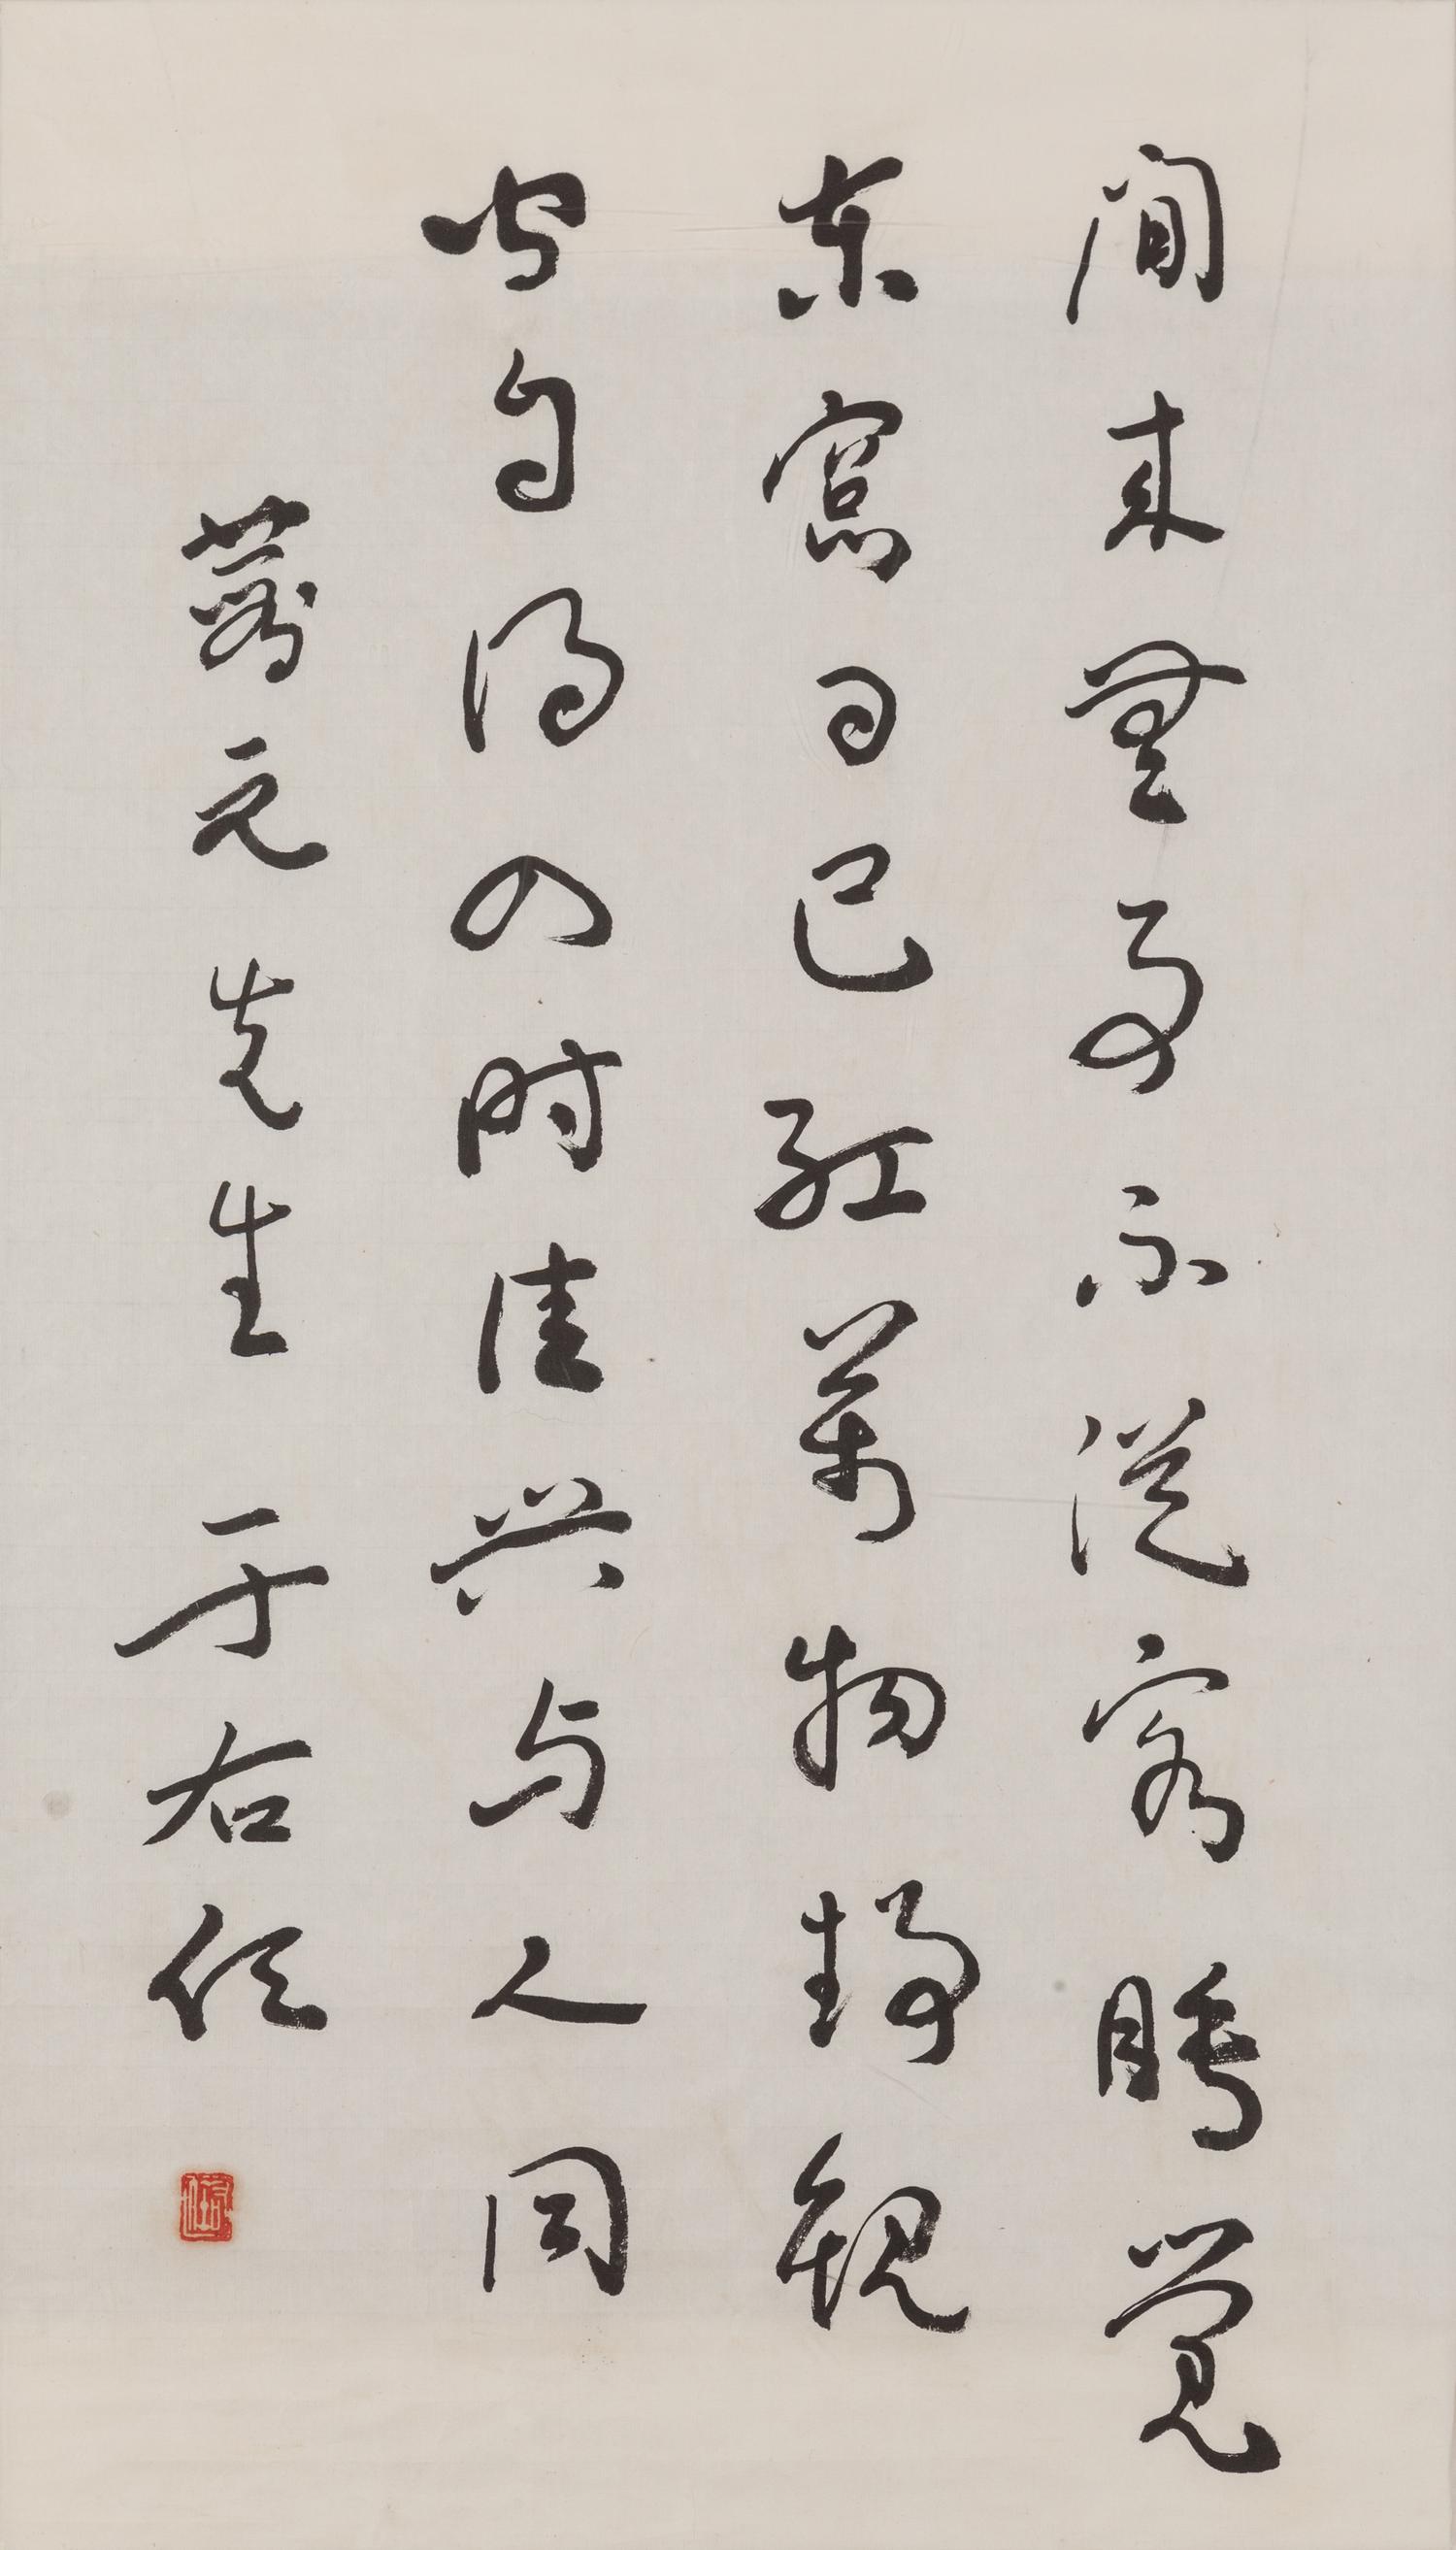 閒來無事不從容睡覺
東窗日已紅萬物靜觀
皆自得四時佳興與人同
元先生 于右任